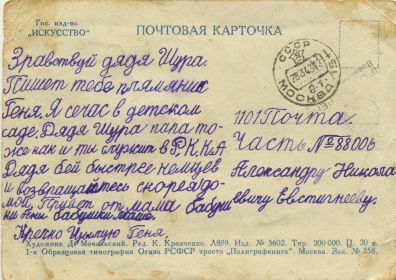 Гос. изд-во
"ИСКУССТВО"
ПОЧТОВАЯ КАРТОЧКА
Зравствуй дядя Шура.
Пишет тебе плямяник
Геня. Я сечас в детском
саде. Дядя Шура папа то-
же как и ти служит в Р.К.К.А
Дядя бей быстрее немцев
и возвращайтесь скорея до-
мой. Привет от мамы бабуш
ки Ани бабушки Маши.
Кречко Цылую Геня.
СССР
МОСКВА
1101 Почта.
Часть № 88006
Александру Никола
евичу Евстигнееву.
Художник Д. Мочальский. Ред. К. Кравченко. Л899. Изд. № 5602. Тир. 200 000. Ц. 20 к.
1-я Образцовая типография Огиза РСФСР треста „Полиграфкнига". Москва. Зак. № 358.